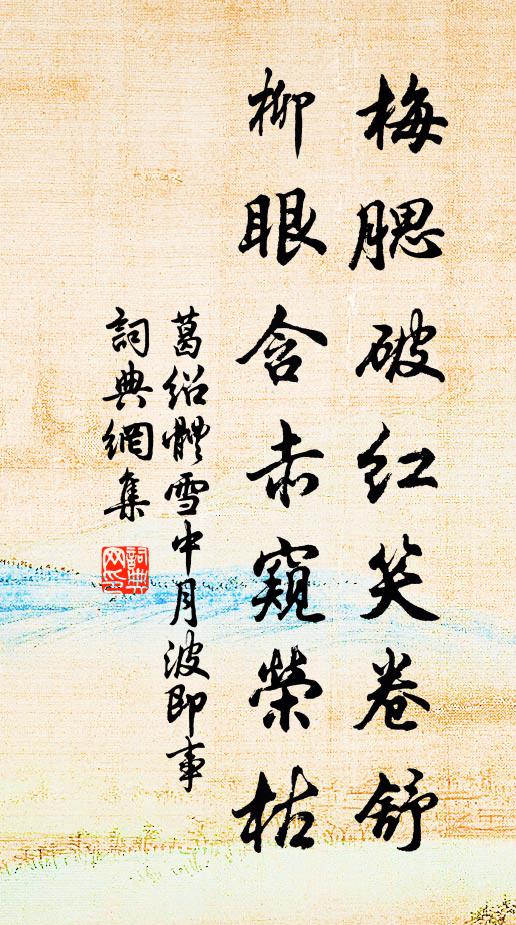 梅腮破红笑卷舒
柳眼含赤窥荣枯
葛绍體雪中月波即事
詞典網集
詞典网印